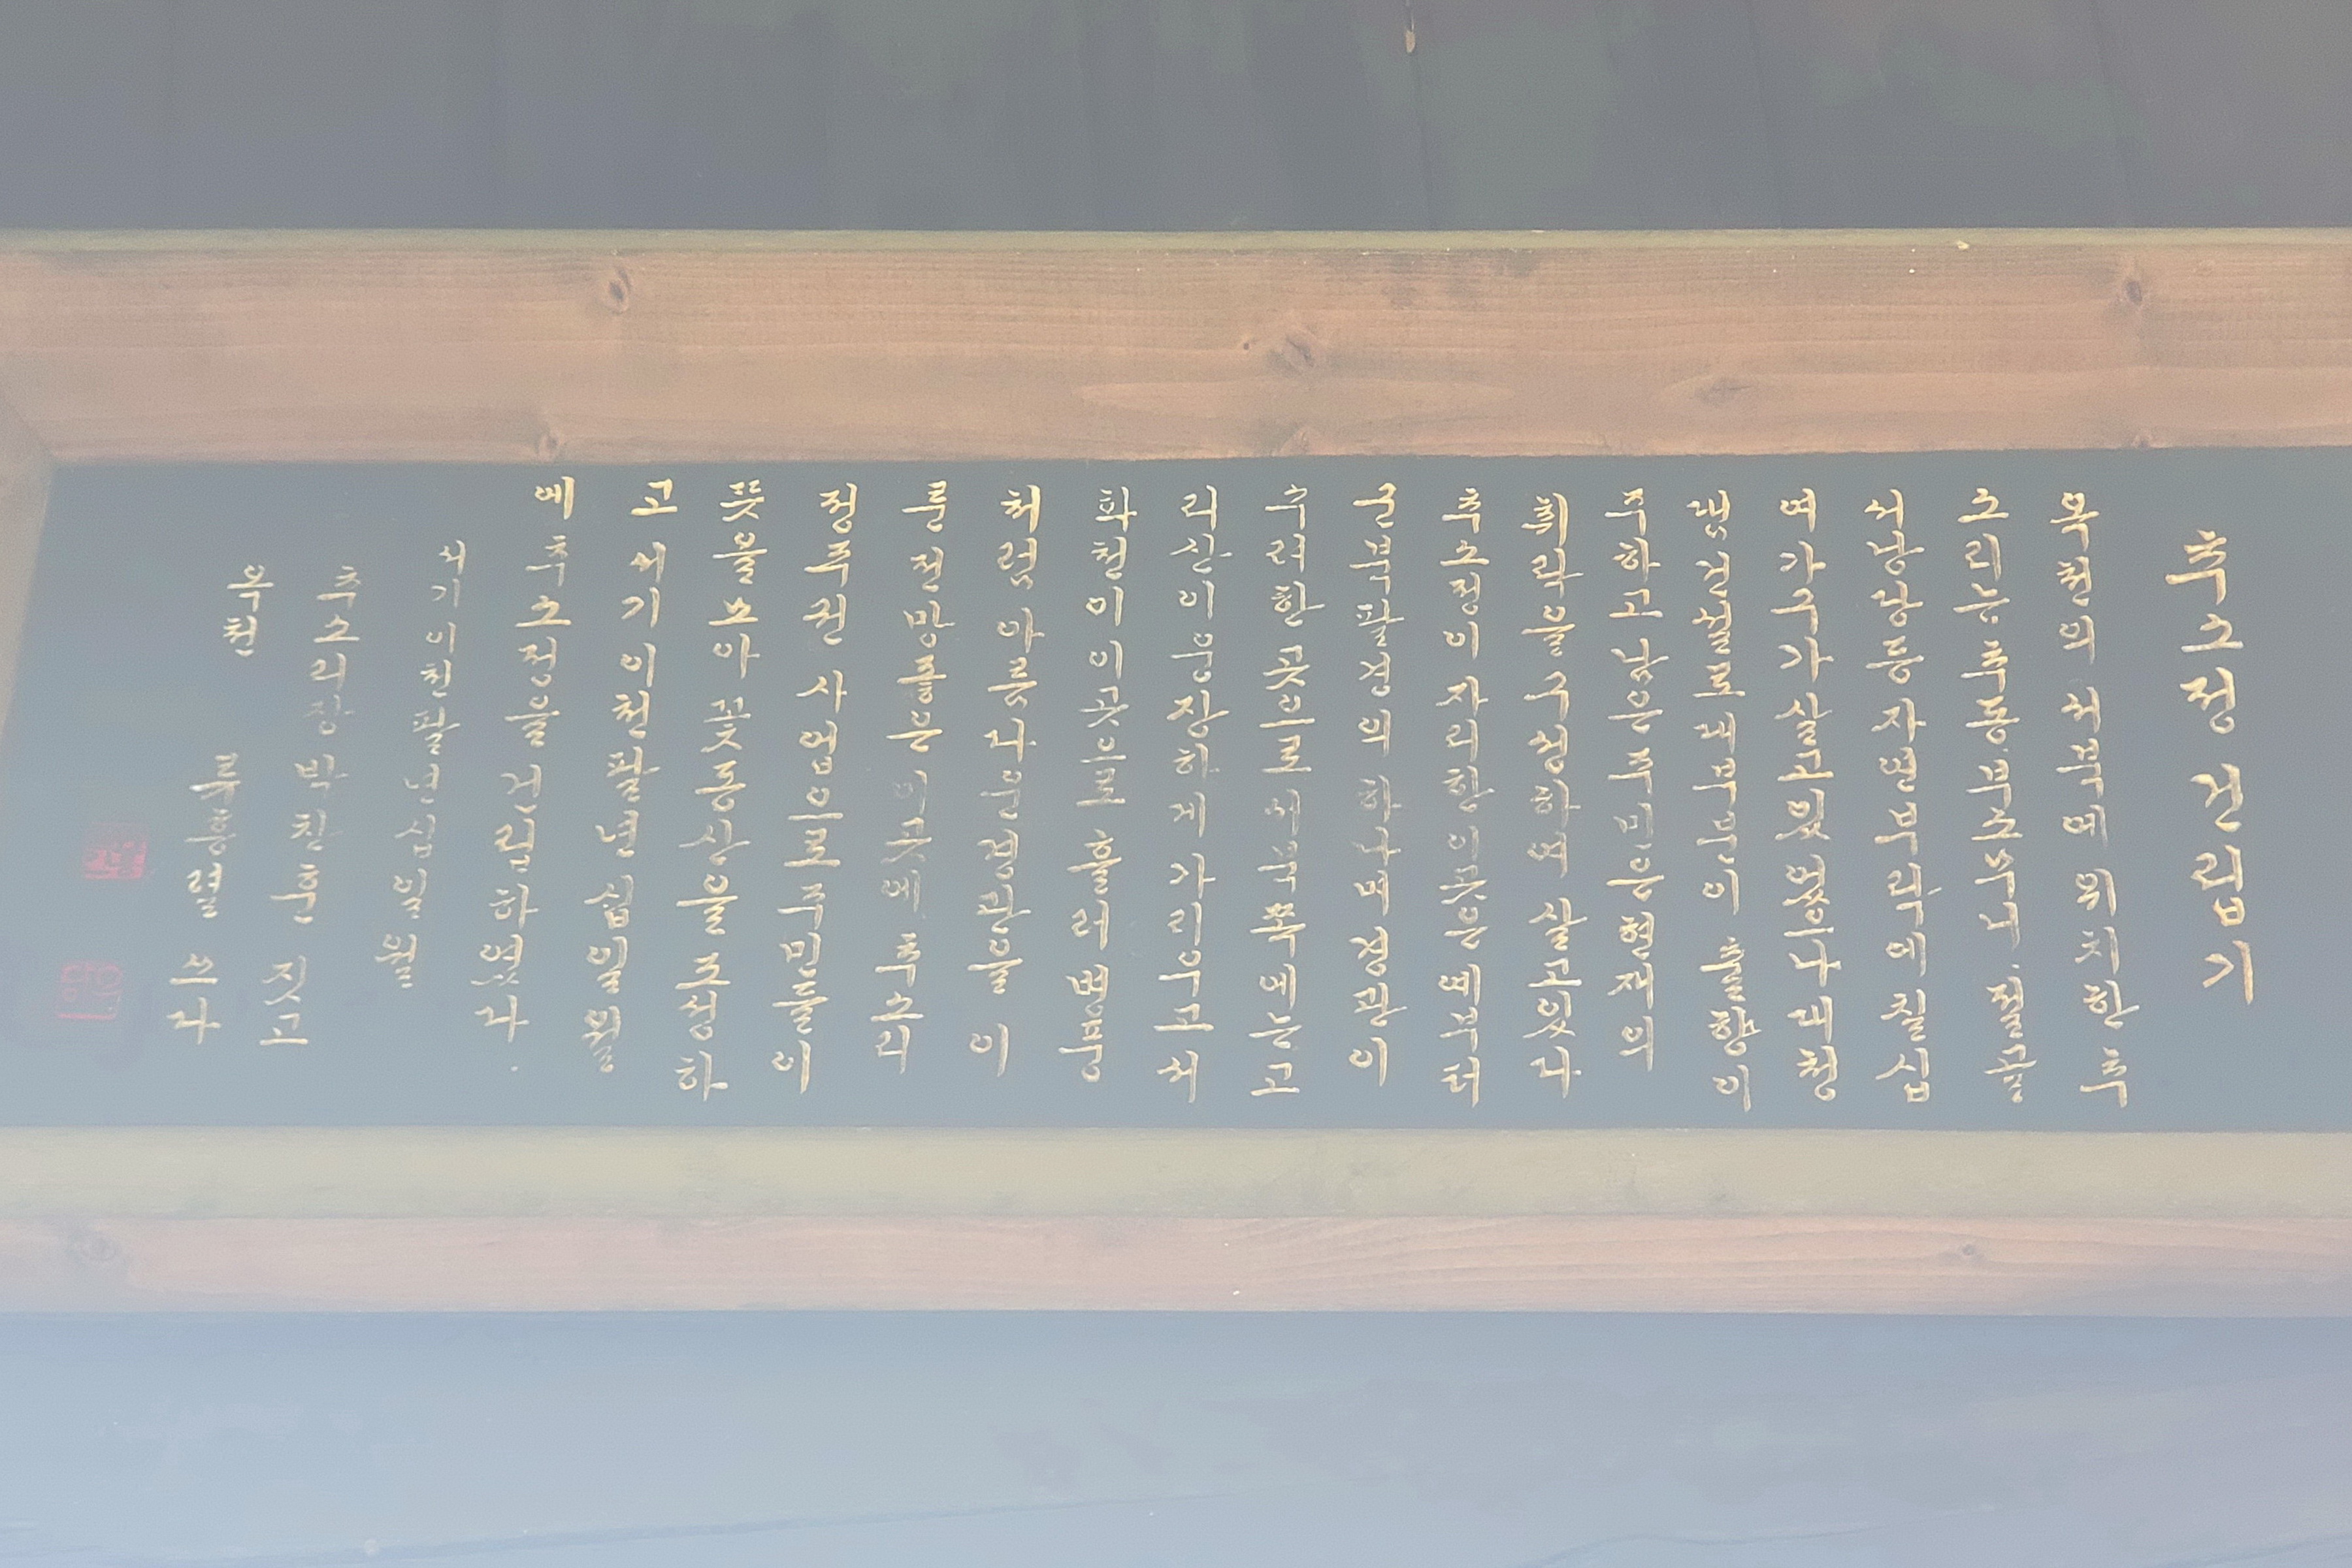 추소정 건립기
옥천의 서북에 위치한 추
소리는 추동 부소무니 절골
서낭당등 자연부락에 칠십
여 가구가 살고 있었으나 대청
댐 건설로 대부분이 출향이
주하고 남은 주민은 현재의
취락을 구성하여 살고 있다
추소정이 자리한 이곳은 예부터
군북팔경의 하나며 경관이
수려한 곳으로 서북쪽에는 고
리산이 웅장하게 가리우고 서
화천이 이곳으로 흘러 병풍
처럼 아름다운 경관을 이
룬 전망 좋은 이곳에 추소리
정주권 사업으로 주민들이
뜻을 모아 꽃동산을 조성하
고 서기 이천팔년 십일월
에 추소정을 건립하였다.
서기 이천팔년 십일월
추소리장 박찬훈 짓고
옥천 류흥렬 쓰다